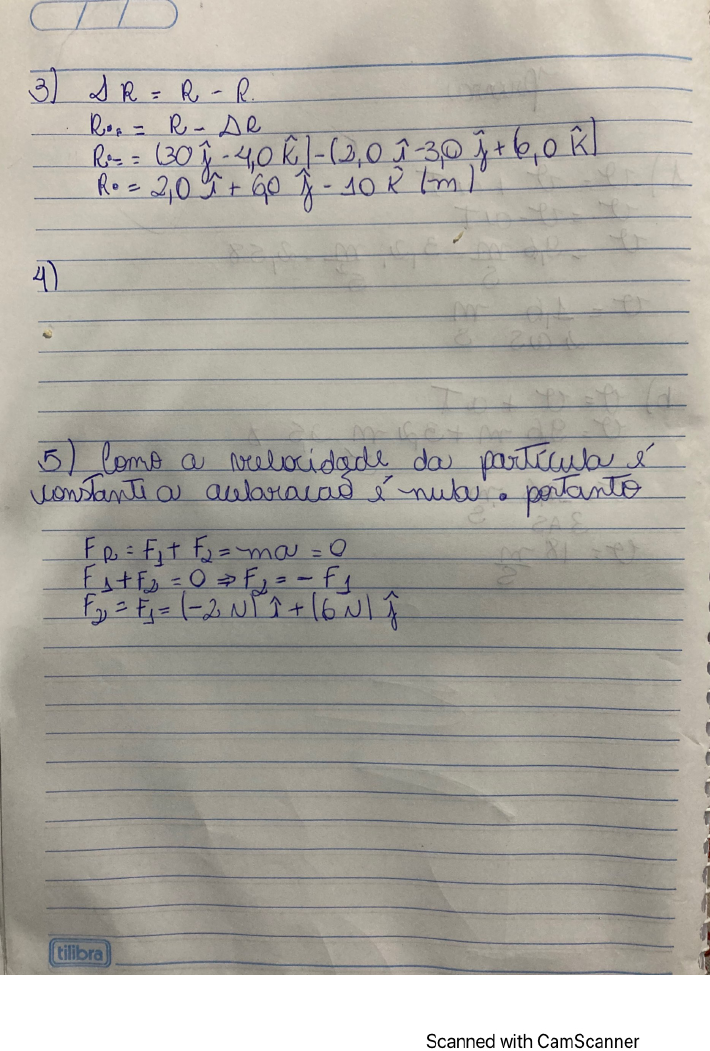 3) ΔR = R - R.
R₀, = R - ΔR
R₀= = (30 ĵ - 4,0 k̂) - (2,0 î - 3,0 ĵ + 6,0 k̂)
R₀ = 2,0 î + 6,0 ĵ - 10 k̂ (m)
4)
5) Como a velocidade da partícula é
constante a aclaracao é nula. portanto
FR = F₁ + F₂ = ma = 0
F₁ + F₂ = 0 ⇒ F₂ = - F₁
F₂ = F₁ = (-2 N) î + (6 N) ĵ
tilibra
Scanned with CamScanner